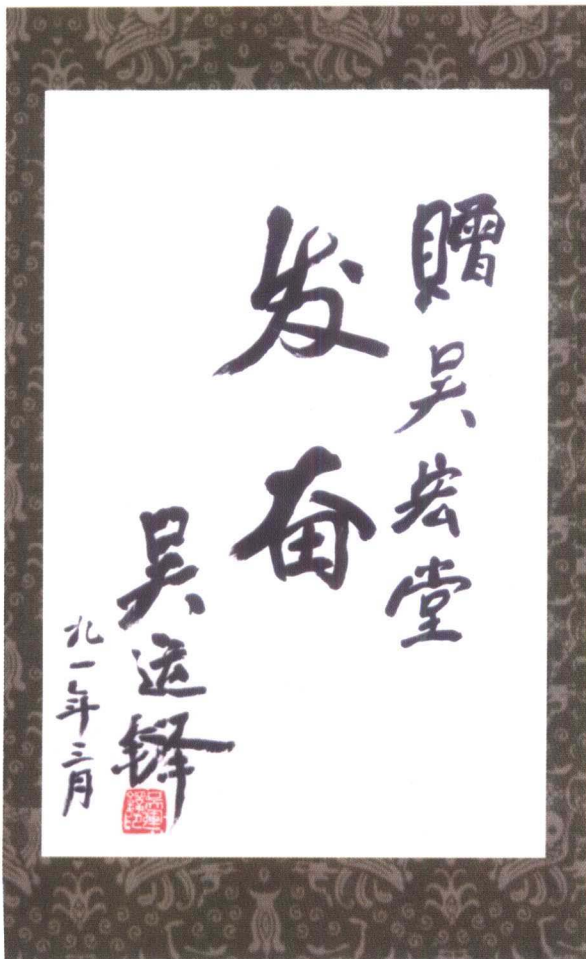 贈吴宏堂
发奋
吴运铎
九一年三月